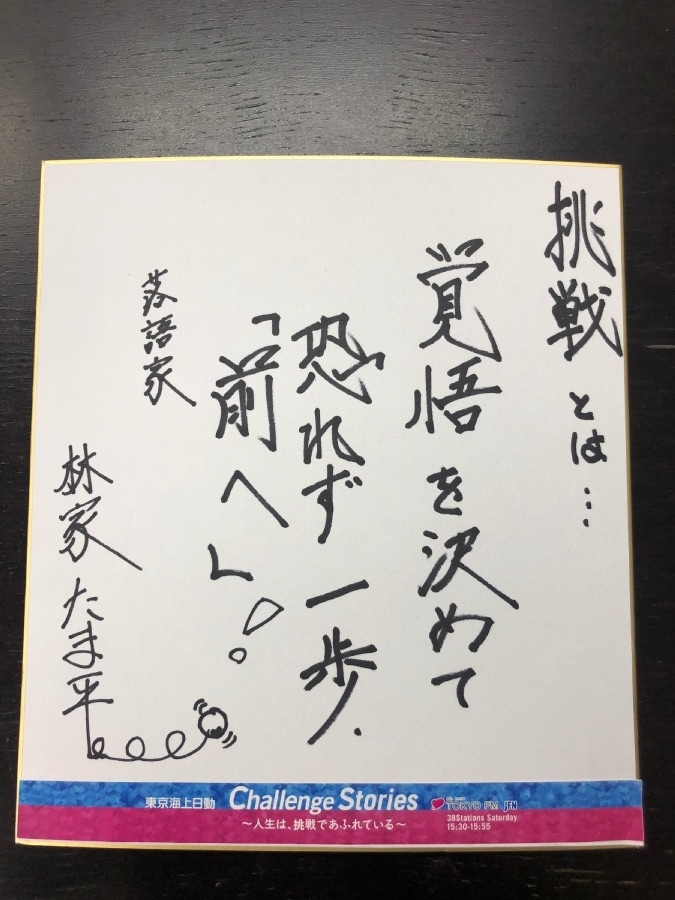 挑戦とは…
覚悟を決めて
恐れず一歩、
「前へ」!
落語家
林家たま平
東京海上日動 Challenge Stories
〜人生は、挑戦であふれている〜
TOKYO FM JFN
38Stations Saturday
15:30-15:55